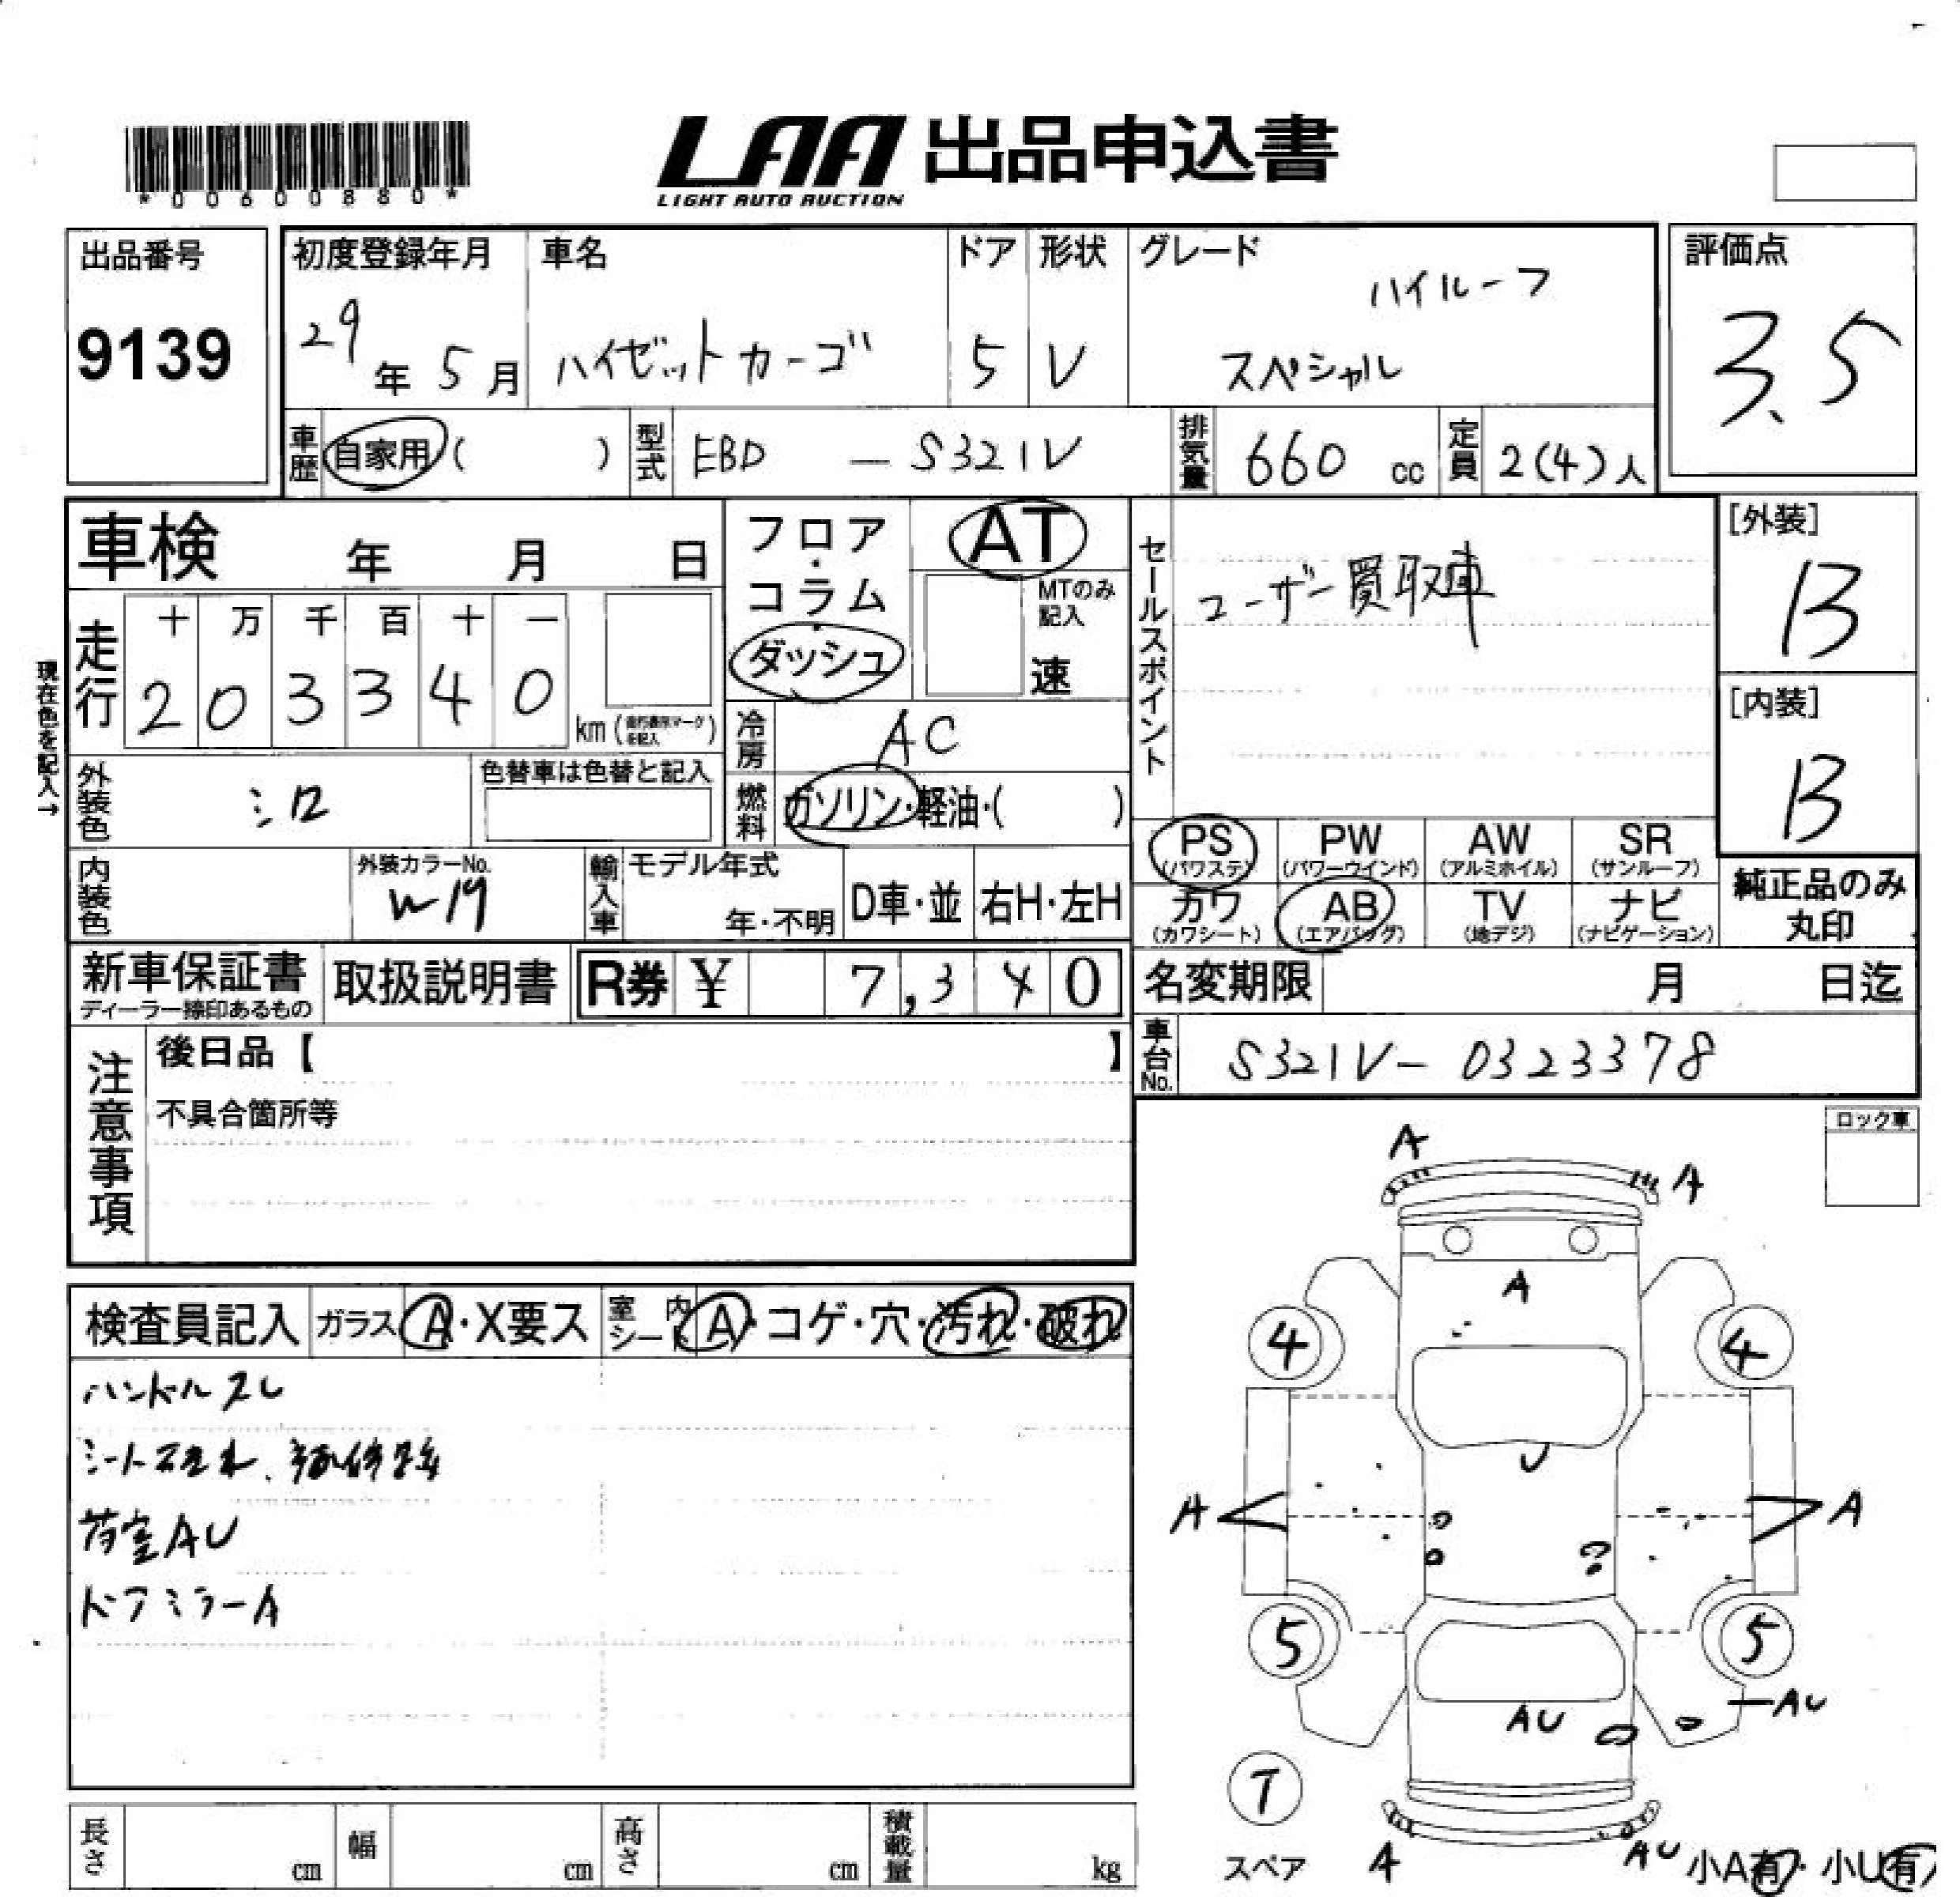 *00600880*
LAA 出品申込書
LIGHT AUTO AUCTION
出品番号
9139
初度登録年月
29年 5月
車名
ハイゼットカーゴ
ドア
5
形状
V
グレード
ハイルーフ
スペシャル
評価点
3.5
車歴
自家用( )
型式
EBD - S321V
排気量
660 cc
定員
2(4)人
車検 年 月 日
フロア・コラム・ダッシュ
AT
MTのみ記入
速
現在色を記入→
走行
十 万 千 百 十 一
2 0 3 3 4 0
km
冷房
AC
燃料
ガソリン・軽油・( )
外装色
シロ
色替車は色替と記入
内装色
外装カラーNo.
W19
輸入車
モデル年式
年・不明
D車・並
右H・左H
セールスポイント
ユーザー買取車
[外装]
B
[内装]
B
PS PW AW SR
(パワステ) (パワーウインド) (アルミホイル) (サンルーフ)
カワ AB TV ナビ
(カワシート) (エアバッグ) (地デジ) (ナビゲーション)
純正品のみ
丸印
新車保証書
ディーラー捺印あるもの
取扱説明書
R券 ¥ 7,340
名変期限 月 日迄
車台No.
S321V-0323378
注意事項
後日品【 】
不具合箇所等
ロック車
検査員記入
ガラス
A・X要ス
室内シート
A・コゲ・穴・汚れ・破れ
ハンドルスレ
シート破れ、補修跡
荷室AU
ドアミラーA
A
A
A
4
4
U
A
A
5
5
AU
AU
T
スペア
A
AU
小A有・小U有
長さ cm
幅 cm
高さ cm
積載量 kg